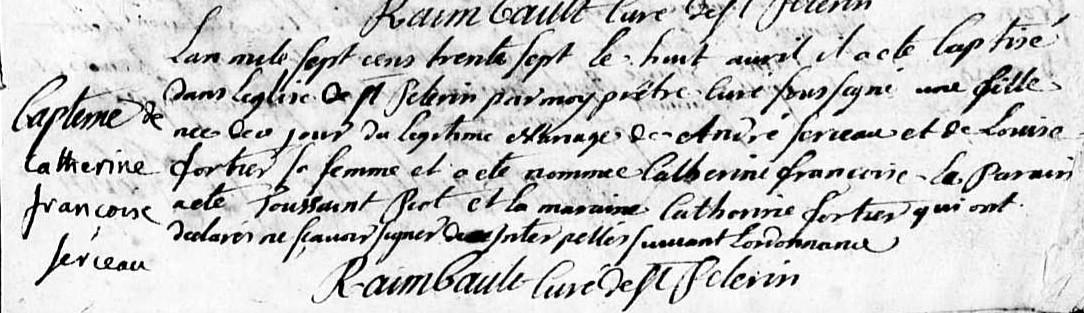 Raimbault Curé de st Pelerin
Lan mile sept cens trente sept le huit avril il a eté baptisé
dans leglise de st Pelerin par moy prêtre curé soussigné une fille
née de ce jour du legitime Mariage de André serceau et de Louise
fortier sa femme et a eté nommée Catherine françoise Le Parain
a eté Toussaint Piot et la maraine Catherine fortier qui ont
declarés ne sçavoir signer de ce interpellés suivant Lordonnance
Raimbault Curé de st Pelerin
Capteme de
Catherine
françoise
serceau